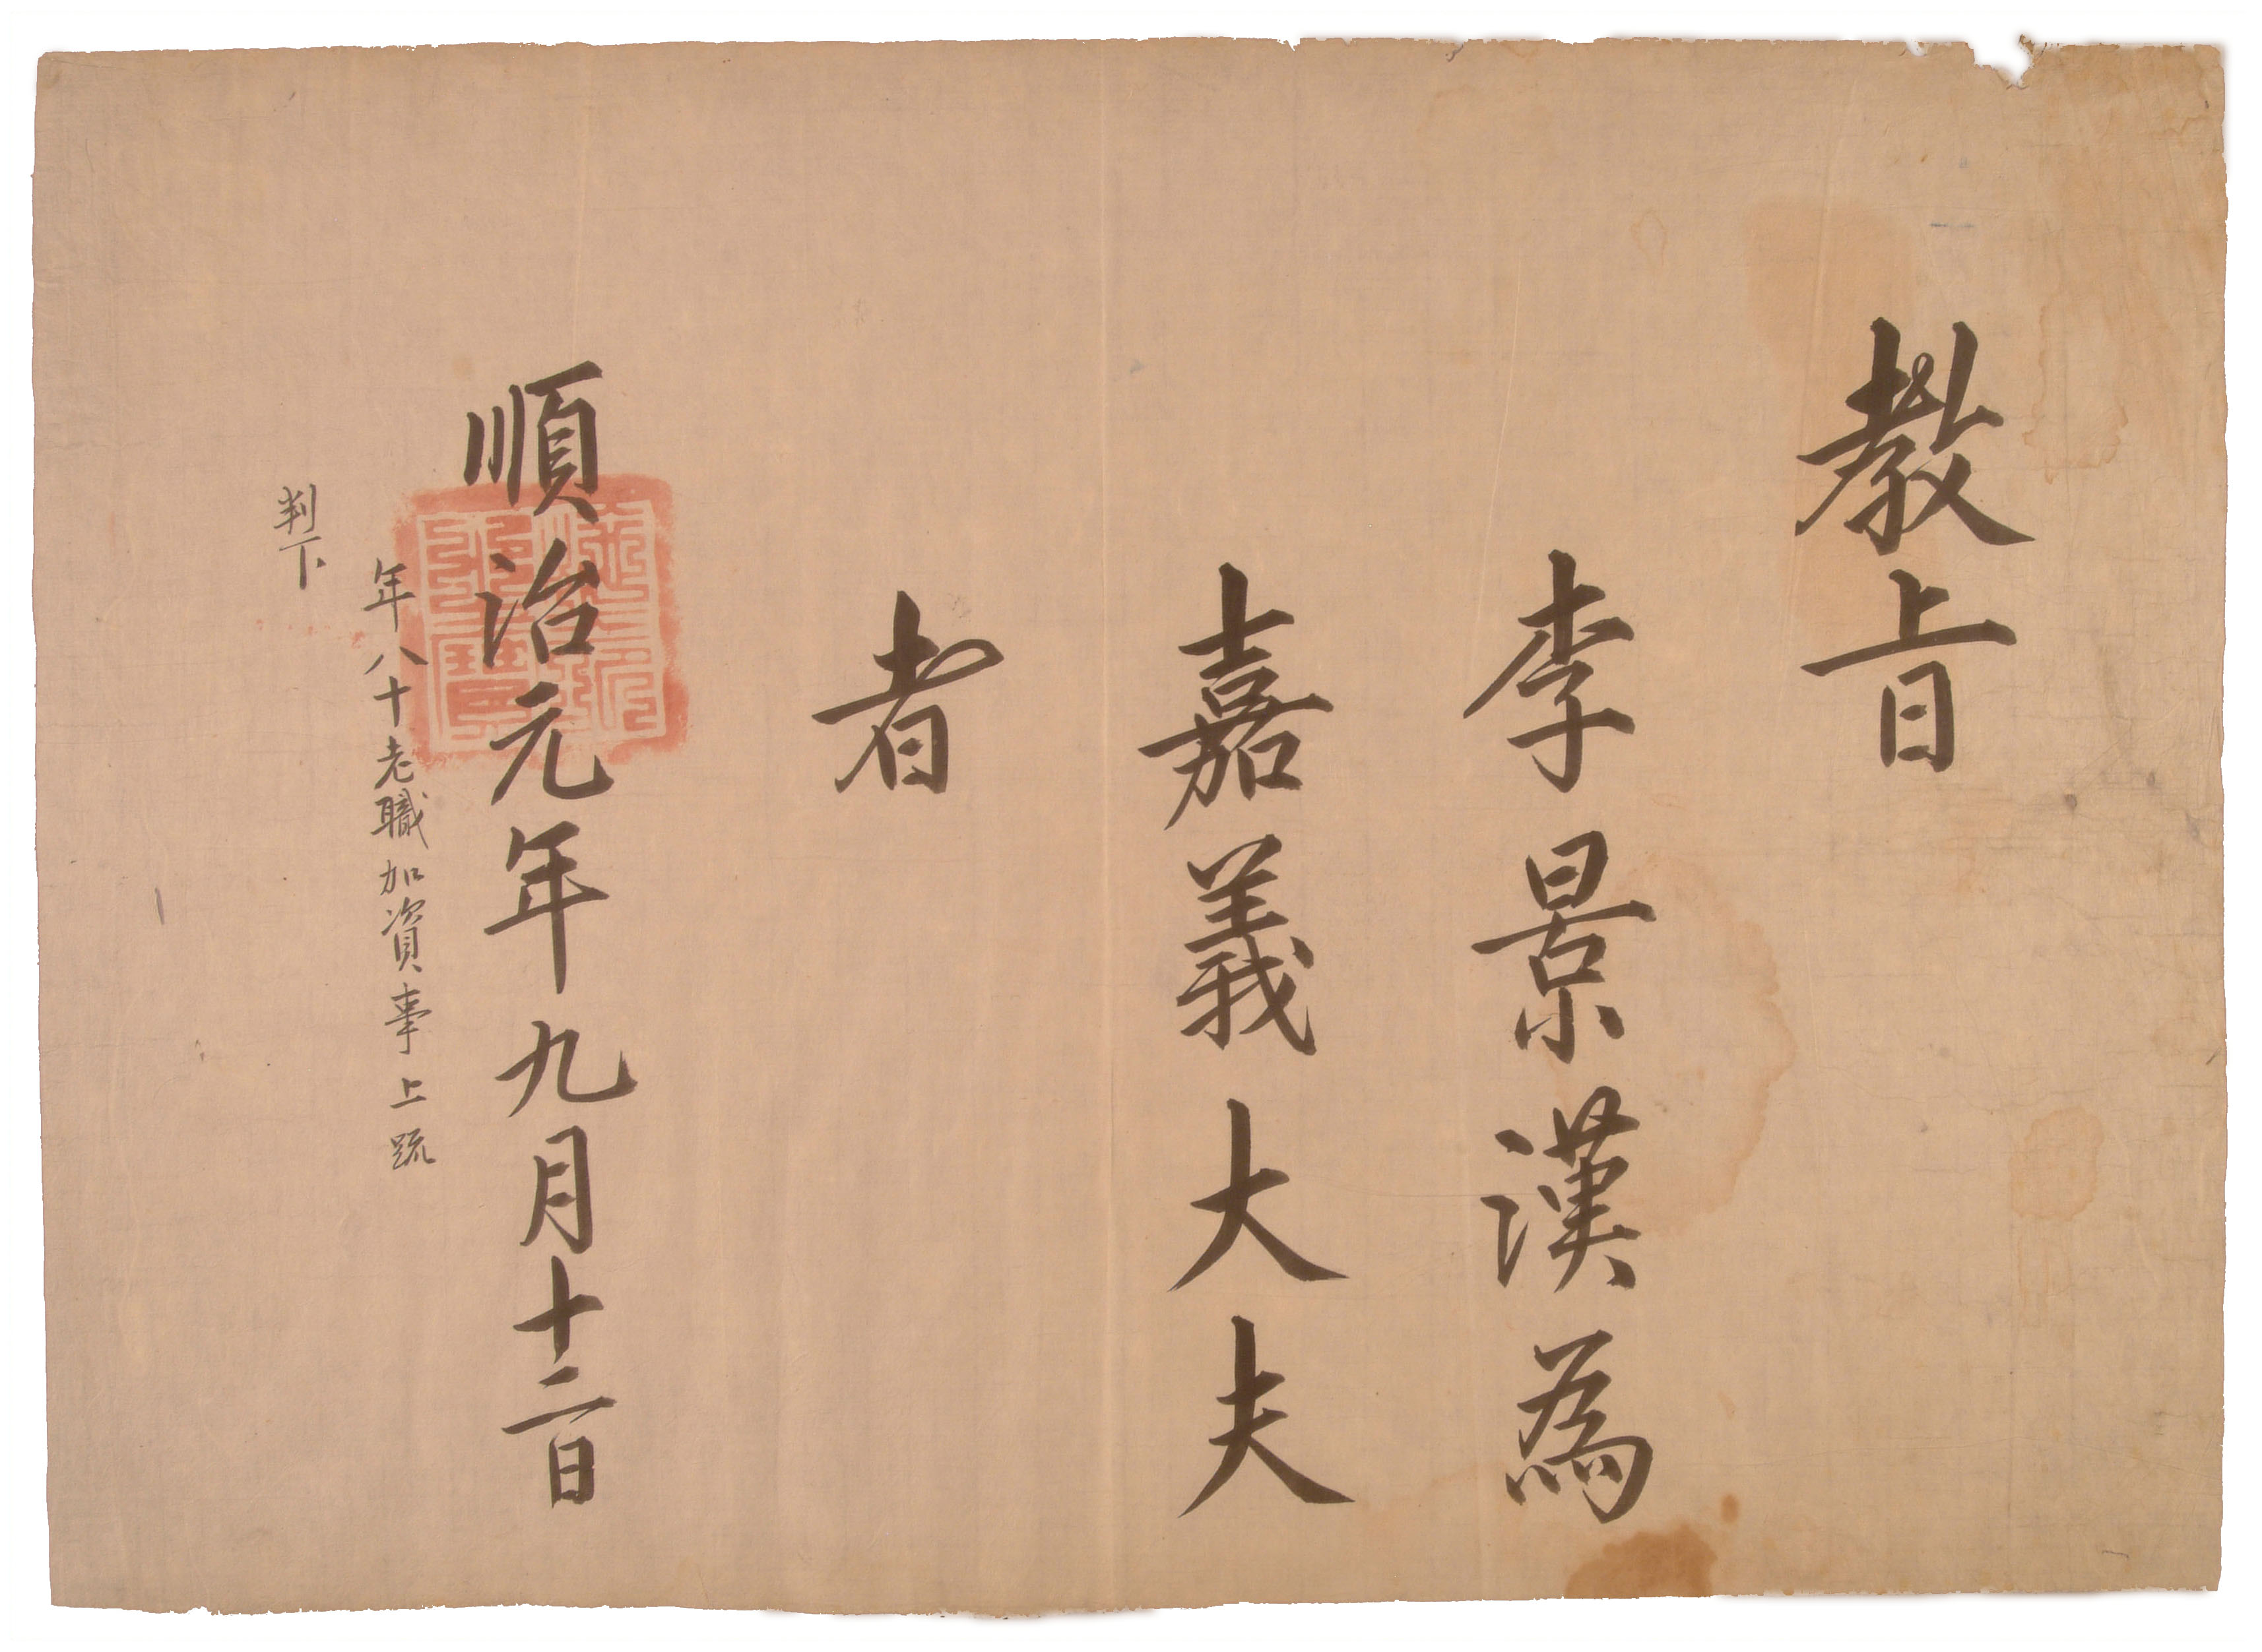 教旨
李景漢為
嘉義大夫
者
順治元年九月十二日
年八十老職加資事上疏
判下
施命之寶